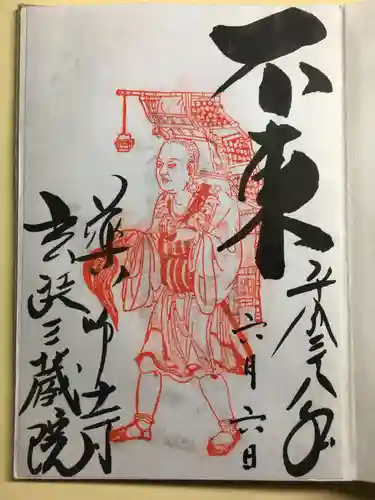 不東
平成二八年
六月六日
薬師寺
玄奘三蔵院